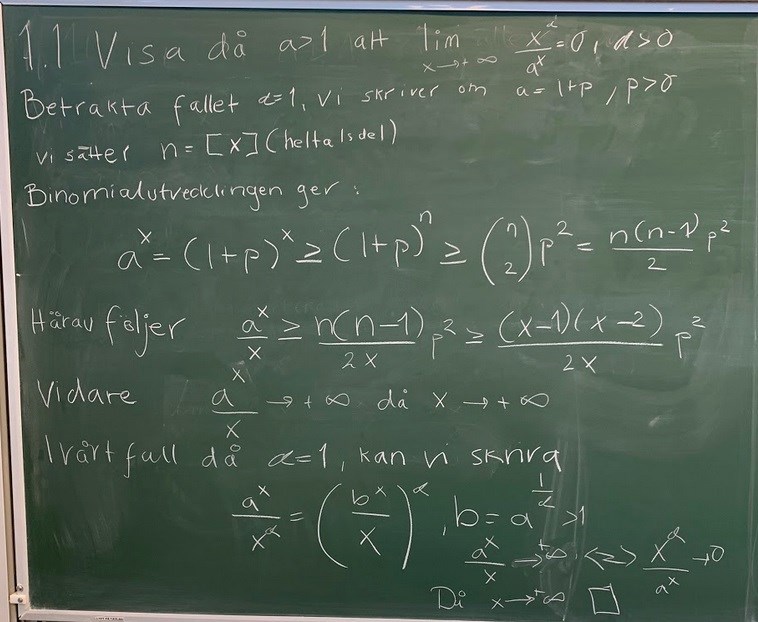 1.1 Visa då a>1 att lim x→+∞ x^α/a^x = 0, α>0
Betrakta fallet α=1, vi skriver om a=1+p, p>0
vi sätter n=[x](heltalsdel)
Binomialutvecklingen ger:
a^x = (1+p)^x ≥ (1+p)^n ≥ (n 2) p^2 = n(n-1)/2 p^2
Härav följer a^x/x ≥ n(n-1)/2x p^2 ≥ (x-1)(x-2)/2x p^2
Vidare a^x/x → +∞ då x → +∞
I vårt fall då α=1, kan vi skriva
a^x/x^α = (b^x/x)^α, b = a^(1/α) >1
a^x/x → +∞ <=> x^α/a^x → 0
Då x→+∞ □